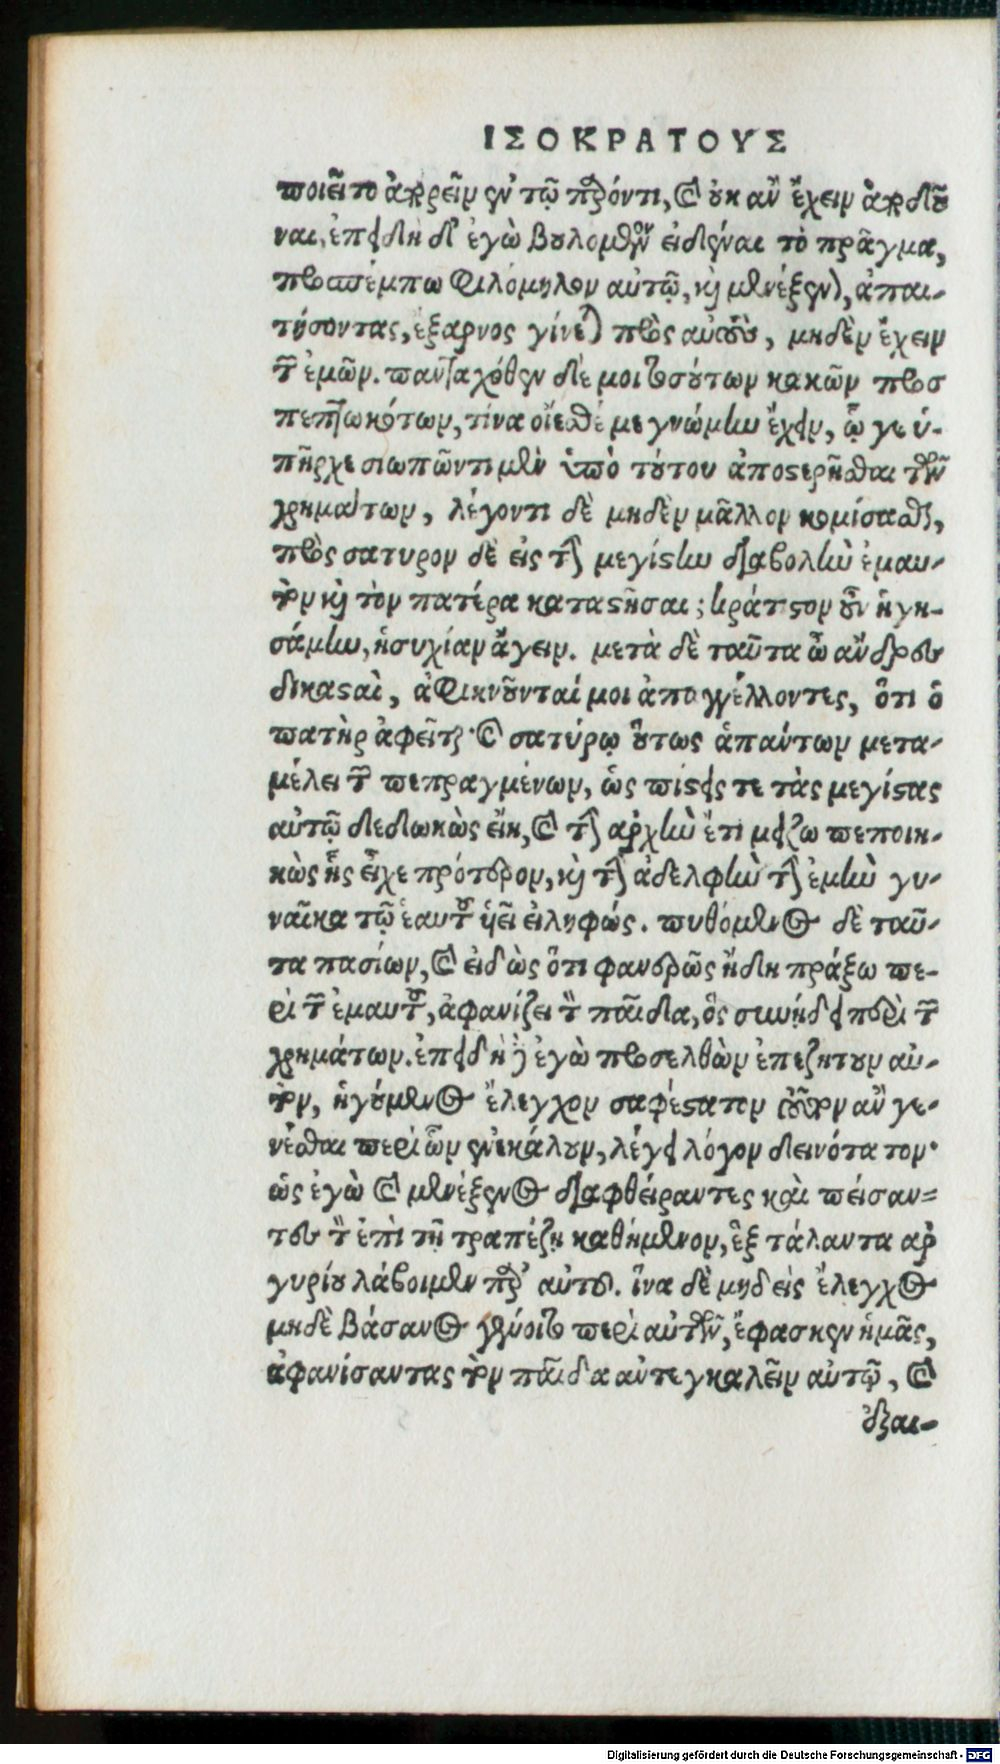 ΙΣΟΚΡΑΤΟΥΣ
ποιεῖτο ἀπορεῖν ἐν τῷ παρόντι, καὶ οὐκ ἂν ἔχειν ἀποδοῦ
ναι, ἐπειδὴ δ' ἐγὼ βουλόμενος εἰδέναι τὸ πρᾶγμα,
προσπέμπω Φιλόμηλον αὐτῷ, καὶ μενέξενον, ἀπαι-
τήσοντας, ἔξαρνος γίνεται πρὸς αὐτοὺς, μηδὲν ἔχειν
τῶν ἐμῶν. πανταχόθεν δέ μοι τοσούτων κακῶν προσ
πεπτωκότων, τίνα οἴεσθέ με γνώμην ἔχειν, ᾧ γε ὑ-
πῆρχε σιωπῶντι μὲν ὑπὸ τούτου ἀποστερῆσθαι τῶν
χρημάτων, λέγοντι δὲ μηδὲν μᾶλλον κομίσασθαι,
πρὸς σατυρον δὲ εἰς τὴν μεγίστην διαβολὴν ἐμαυ-
τὸν καὶ τὸν πατέρα καταστῆσαι; κράτιστον οὖν ἡγη-
σάμην, ἡσυχίαν ἄγειν. μετὰ δὲ ταῦτα ὦ ἄνδρες
δικασταὶ, ἀφικνοῦνταί μοι ἀπαγγέλλοντες, ὅτι ὁ
πατὴρ ἀφεῖται· καὶ σατύρῳ οὕτως ἁπάντων μετα-
μέλει τῶν πεπραγμένων, ὡς πίστεις τε τὰς μεγίστας
αὐτῷ δεδωκὼς εἴη, καὶ τὴν ἀρχὴν ἔτι μείζω πεποιη-
κὼς ἧς εἶχε πρότερον, καὶ τὴν ἀδελφὴν τὴν ἐμὴν γυ-
ναῖκα τῷ ἑαυτοῦ υἱεῖ εἰληφώς. πυθόμενος δὲ ταῦ-
τα πασίων, καὶ εἰδὼς ὅτι φανερῶς ἤδη πράξω πε-
ρὶ τῶν ἐμαυτοῦ, ἀφανίζει τὸν παῖδα, ὃς συνῄδει περὶ τῶν
χρημάτων. ἐπειδὴ δὲ ἐγὼ προσελθὼν ἐπεζήτουν αὐ-
τὸν, ἡγούμενος ἔλεγχον σαφέστατον τοῦτον ἂν γε-
νέσθαι περὶ ὧν ἐνεκάλουν, λέγει λόγον δεινότατον·
ὡς ἐγὼ καὶ μενέξενος διαφθείραντες καὶ πείσαν=
τες τὸν ἐπὶ τῇ τραπέζῃ καθήμενον, ἓξ τάλαντα αρ
γυρίου λάβοιμεν παρ' αὐτοῦ. ἵνα δὲ μηδεὶς ἔλεγχος
μηδὲ βάσανος γένοιτο περὶ αὐτῶν, ἔφασκεν ἡμᾶς,
ἀφανίσαντας τὸν παῖδα αντεγκαλεῖν αὐτῷ, καὶ
ἐξαι-
Digitalisierung gefördert durch die Deutsche Forschungsgemeinschaft - DFG